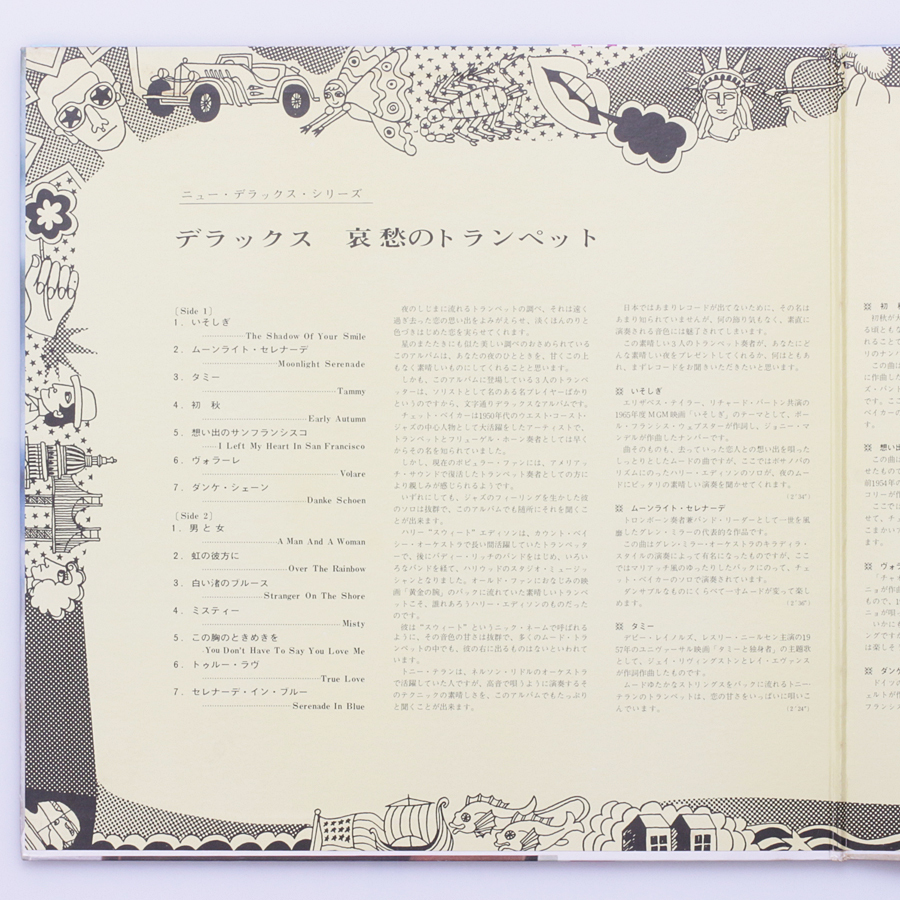 ニュー・デラックス・シリーズ
デラックス 哀愁のトランペット
〔Side 1〕
1. いそしぎ
The Shadow Of Your Smile
2. ムーンライト・セレナーデ
Moonlight Serenade
3. タミー
Tammy
4. 初 秋
Early Autumn
5. 想い出のサンフランシスコ
I Left My Heart In San Francisco
6. ヴォラーレ
Volare
7. ダンケ・シェーン
Danke Schoen
〔Side 2〕
1. 男と女
A Man And A Woman
2. 虹の彼方に
Over The Rainbow
3. 白い渚のブルース
Stranger On The Shore
4. ミスティー
Misty
5. この胸のときめきを
You Don't Have To Say You Love Me
6. トゥルー・ラヴ
True Love
7. セレナーデ・イン・ブルー
Serenade In Blue
夜のしじまに流れるトランペットの調べ、それは遠く
過ぎ去った恋の思い出をよみがえらせ、淡くほんのりと
色づきはじめた恋を実らせてくれます。
星のまたたきにも似た美しい調べのおさめられている
このアルバムは、あなたの夜のひとときを、甘くこの上
もなく素晴しいものにしてくれることと思います。
しかも、このアルバムに登場している3人のトランペ
ッターは、ソリストとして名のある名プレイヤーばかり
というのですから、文字通りデラックスなアルバムです。
チェット・ベイカーは1950年代のウエスト・コースト・
ジャズの中心人物として大活躍をしたアーチストで、
トランペットとフリューゲル・ホーン奏者としては早く
からその名を知られていました。
しかし、現在のポピュラー・ファンには、アメリアッ
チ・サウンドで復活したトランペット奏者としての方に
より親しみが感じられるようです。
いずれにしても、ジャズのフィーリングを生かした彼
のソロは抜群で、このアルバムでも随所にそれを聞くこ
とが出来ます。
ハリー“スウィート”エディソンは、カウント・ベイ
シー・オーケストラで長い間活躍していたトランペッタ
ーで、後にバディー・リッチのバンドをはじめ、いろい
ろなバンドを経て、ハリウッドのスタジオ・ミュージッ
シャンとなりました。オールド・ファンにおなじみの映
画「黄金の腕」のバックに流れていた素晴しいトランペ
ットこそ、誰れあろうハリー・エディソンのものだった
のです。
彼は“スウィート”というニック・ネームで呼ばれる
ように、その音色の甘さは抜群で、多くのムード・トラ
ンペットの中でも、彼の右に出るものはないといわれて
います。
トニー・テランは、ネルソン・リドルのオーケストラ
で活躍していた人ですが、高音で唄うように演奏するそ
のテクニックの素晴しさを、このアルバムでもたっぷり
と聞くことが出来ます。
日本ではあまりレコードが出てないために、その名は
あまり知られていませんが、何の飾り気もなく、素直に
演奏される音色には魅了されてしまいます。
この素晴しい3人のトランペット奏者が、あなたにど
んな素晴しい夜をプレゼントしてくれるか、何はともあ
れ、まずレコードをお聞きいただきたいと思います。
※ いそしぎ
エリザベス・テイラー、リチャード・バートン共演の
1965年度MGM映画「いそしぎ」のテーマとして、ポー
ル・フランシス・ウェブスターが作詞し、ジョニー・マ
ンデルが作曲したナンバーです。
曲そのものも、去っていった恋人との想い出を唄った
しっとりとしたムードの曲ですが、ここではボサノバの
リズムにのったハリー・エディソンのソロが、夜のムー
ドにピッタリの素晴しい演奏を聞かせてくれます。
(2'34")
※ ムーンライト・セレナーデ
トロンボーン奏者兼バンド・リーダーとして一世を風
靡したグレン・ミラーの代表的な作品です。
この曲はグレン・ミラー・オーケストラのキラディラ・
スタイルの演奏によって有名になったものですが、ここ
ではマリアッチ風のゆったりしたバックにのって、チェ
ット・ベイカーのソロで演奏されています。
ダンサブルなものにくらべて一寸ムードが変って楽し
めます。
(2'36")
※ タミー
デビー・レイノルズ、レスリー・ニールセン主演の19
57年のユニヴァーサル映画「タミーと独身者」の主題歌
として、ジェイ・リヴィングストンとレイ・エヴァンス
が作詞作曲したものです。
ムードゆたかなストリングスをバックに流れるトニー・
テランのトランペットは、恋の甘さをいっぱいに唄いこ
んでいます。
(2'24")
※ 初 秋
※ 想い出
※ ヴォラ
※ ダンケ